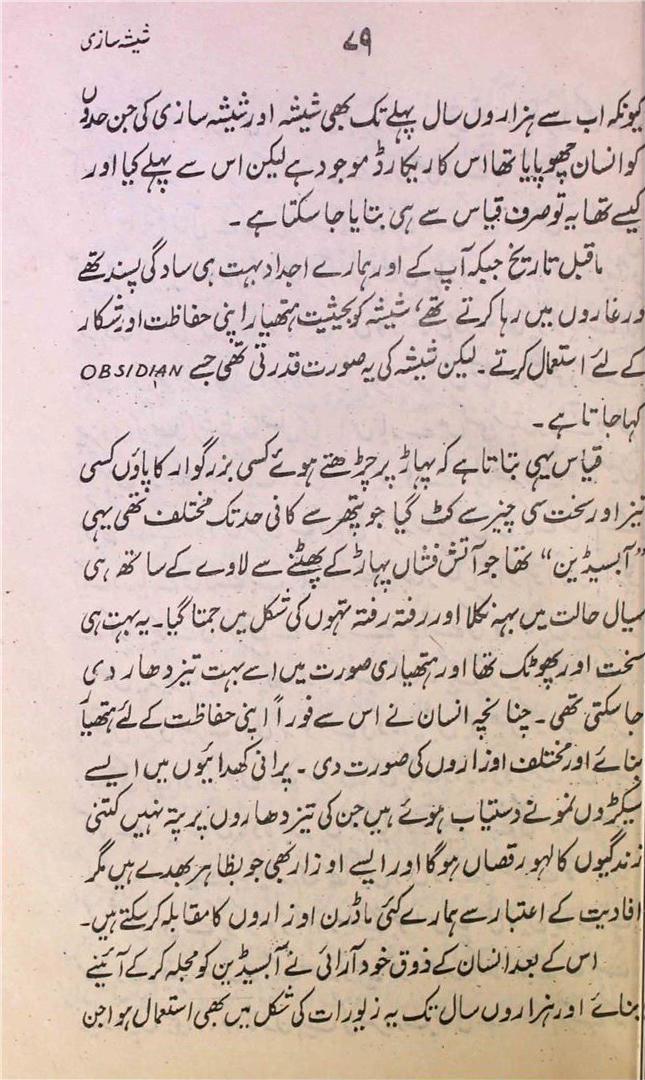 ۷۹
شیشہ سازی
کیونکہ اب سے ہزاروں سال پہلے تک بھی شیشہ اور شیشہ سازی کی جن حدوں
کو انسان چھو پایا تھا اس کا ریکارڈ موجود ہے لیکن اس سے پہلے کیا اور
کیسے تھا یہ تو صرف قیاس سے ہی بتایا جا سکتا ہے۔
ماقبل تاریخ جبکہ آپ کے اور ہمارے اجداد بہت ہی سادگی پسند تھے
ور غاروں میں رہا کرتے تھے، شیشہ کو بحیثیت ہتھیار اپنی حفاظت اور شکار
کے لئے استعمال کرتے۔ لیکن شیشہ کی یہ صورت قدرتی تھی جسے OBSIDIAN
کہا جاتا ہے۔
قیاس یہی بتاتا ہے کہ پہاڑ پر چڑھتے ہوئے کسی بزرگوار کا پاؤں کسی
تیز اور سخت سی چیز سے کٹ گیا جو پتھر سے کافی حد تک مختلف تھی یہی
”آبسیڈین“ تھا جو آتش فشاں پہاڑ کے پھٹنے سے لاوے کے ساتھ ہی
سیال حالت میں بہہ نکلا اور رفتہ رفتہ تہوں کی شکل میں جمتا گیا۔ یہ بہت ہی
سخت اور پھوٹک تھا اور ہتھیاری صورت میں اسے بہت تیز دھار دی
جا سکتی تھی۔ چنانچہ انسان نے اس سے فوراً اپنی حفاظت کے لئے ہتھیار
بنائے اور مختلف اوزاروں کی صورت دی۔ پرانی کھدائیوں میں ایسے
سیکڑوں نمونے دستیاب ہوئے ہیں جن کی تیز دھاروں پر پتہ نہیں کتنی
زندگیوں کا لہو رقصاں ہوگا اور ایسے اوزار بھی جو بظاہر بھدے ہیں مگر
افادیت کے اعتبار سے ہمارے کئی ماڈرن اوزاروں کا مقابلہ کر سکتے ہیں۔
اس کے بعد انسان کے ذوق خود آرائی نے آبسیڈین کو مجلہ کر کے آئینے
بنائے اور ہزاروں سال تک یہ زیورات کی شکل میں بھی استعمال ہوا جن